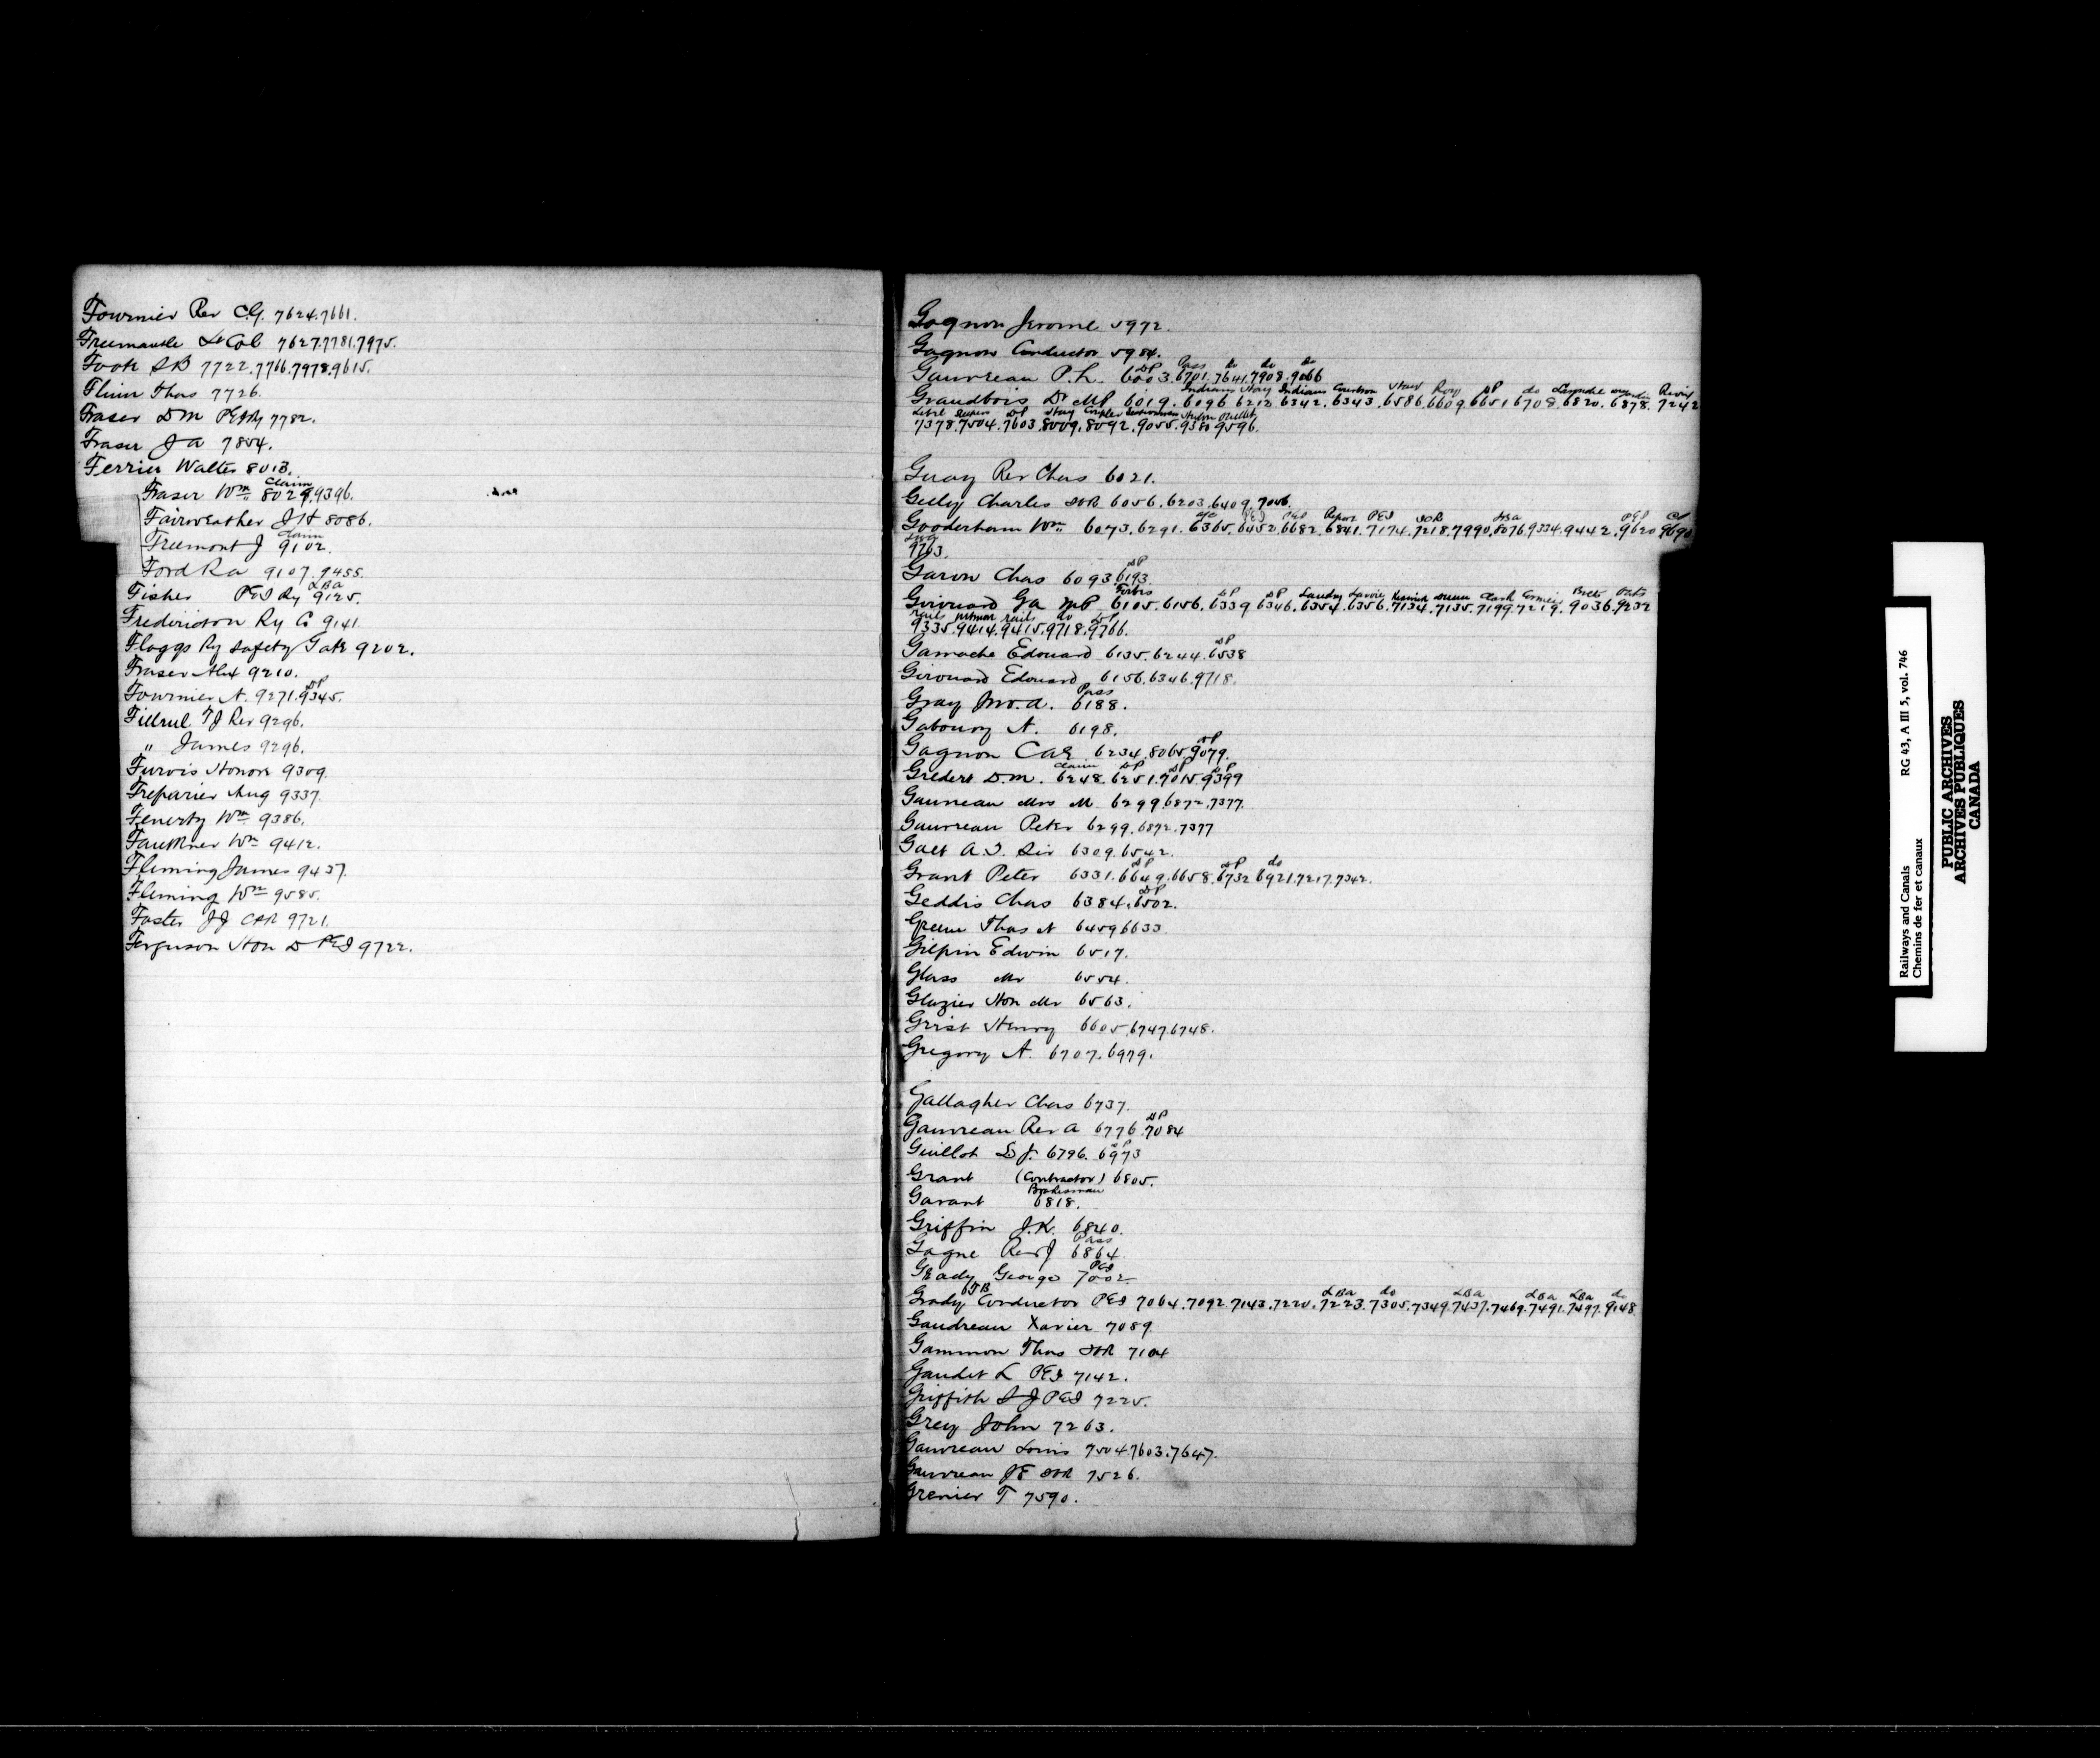 Fournier Rev C.G. 7624.7661.
Freemantle Lt Col 7627.7781.7975.
Foot SB 7722.7766.7978.9615.
Flinn Thos 7726.
Fraser DM PEIRy 7782.
Fraser J A 7854.
Ferrier Walter 8013.
Claim
Fraser Wm 8029.9396.
Fairweather J H 8086.
Claim
Freemont J 9102.
Ford R A 9107.9455.
LBA
Fisher PEI Ry 9125.
Fredericton Ry Co 9141
Flaggs Ry Safety Gate 9202.
Fraser Alex 9210.
DP
Fournier A. 9271.9345.
TJ Rev 9296.
" James 9296.
Furois Honore 9309.
Freparier Aug 9337.
Fenerty Wm 9386.
Faulkner Wm 9412.
Fleming James 9437.
Fleming Wm 9585.
Foster JJ CAR 9721.
Ferguson Hon D PEI 9722.
Gagnon Jerome 5972.
Gagnon Conductor 5984.
DP Pass do do do
Gauvreau P.L. 6003.6701.7641.7908.9066
Indians Hay Indians Roy DP do
Grandbois Dr MP 6019.6096.6212.6342.6343.6586.6609.6651.6708.6820.6878.7242
DP Hay Sectionmen Ouellet
7378.7504.7603.8009.8092.9055.9380.9596.
Guay Rev Chas 6021.
Gelly Charles ICR 6056.6203.6409.7056.
PEI PEI Report PEI ICR LBA PEI
Gooderham Wm 6073.6291.6365.6452.6682.6841.7174.7218.7990.8076.9334.9442.9620.9690
9763.
DP
Garon Chas 6093.6193.
Forbes DP DP Landry Clark Cormier
Girouard GA MP 6105.6156.6339.6346.6354.6356.7134.7135.7199.7219.9036.9232
rails rails do DP
9335.9414.9415.9718.9766.
DP
Gamache Edouard 6135.6244.6538
Girouard Edouard 6156.6346.9718.
Pass
Gray Jno. A. 6188.
Gaboury A. 6198.
DP
Gagnon CAE 6234.8065.9079.
Claim DP DP DP
D.M. 6248.6251.7015.9399
Gauvreau Mrs M 6299.6872.7377.
Gauvreau Peter 6299.6872.7377
Galt A.T. Sir 6309.6542.
DP DP do
Grant Peter 6331.6649.6658.6732.6921.7217.7342.
DP
Geddis Chas 6384.6502.
Greene Thos A 6459.6633
Gilpin Edwin 6517.
Glass Mr 6554.
Glazier Hon Mr 6563.
Grist Henry 6605.6747.6748.
Gregory A. 6707.6979.
Gallagher Chas 6737.
DP
Gauvreau Rev A 6776.7084
DP
Guillot L J. 6796.6973
Grant (Contractor) 6805.
Brakesman
Garant 6818.
Griffin J.K. 6840.
Pass
Gagne Rev J 6864.
PEI
Grady George 7002.
JB LBA do LBA LBA LBA do
Grady Conductor PEI 7064.7092.7143.7220.7223.7305.7349.7437.7469.7491.7497.9148.
Gaudreau Xavier 7089.
Gammon Thos ICR 7104
Gaudet L PEI 7142.
Griffith S J PEI 7225.
Grey John 7263.
Gauvreau Louis 7504.7603.7647.
Gauvreau JE ICR 7526.
Grenier T 7590.
Railways and Canals
Chemins de fer et canaux
RG 43, A III 5, vol. 746
PUBLIC ARCHIVES
ARCHIVES PUBLIQUES
CANADA